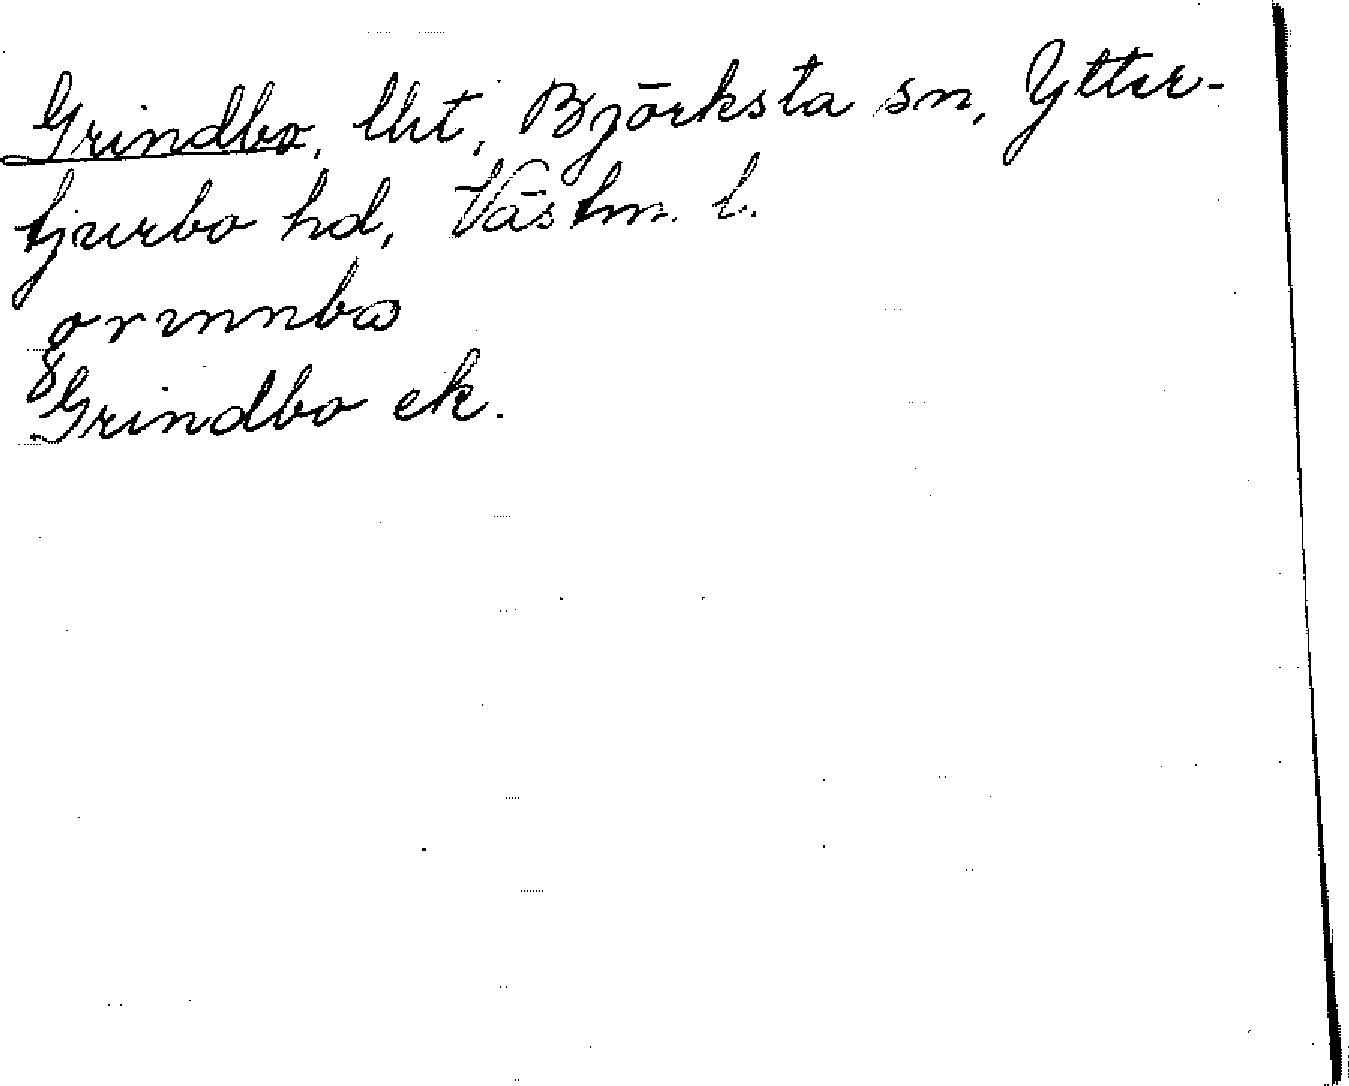 Grindbo, lht, Björksta sn, Ytter-
tjurbo hd, Västm. l.
grınnbω
Grindbo ek.